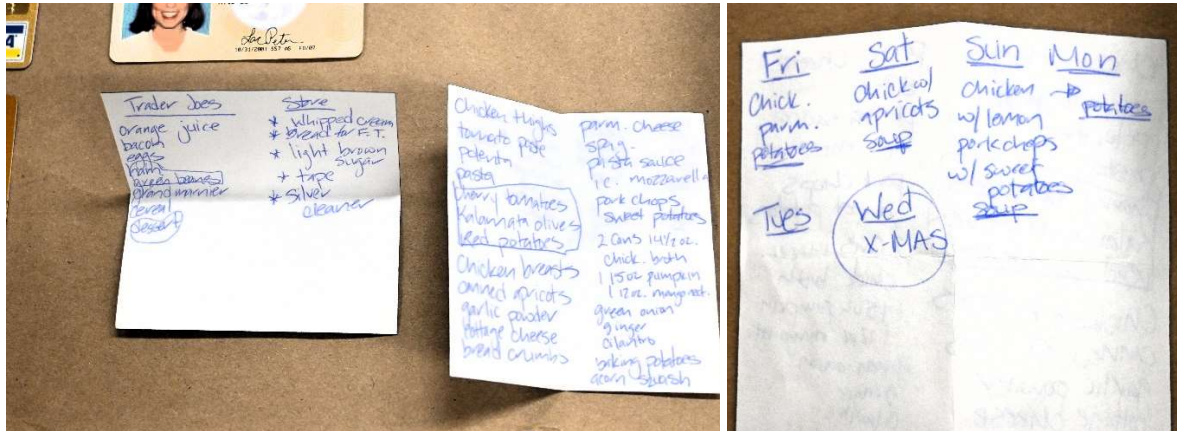 4
10/31/2001 557 05 FD/07
Trader Joes
orange juice
bacon
eggs
ham
green beans
grand marnier
cereal
dessert
Store
* whipped cream
* bread for F.T.
* light brown
sugar
* tape
* silver
cleaner
chicken thighs
tomato paste
polenta
pasta
cherry tomatoes
Kalamata olives
Red potatoes
Chicken breasts
canned apricots
garlic powder
cottage cheese
bread crumbs
parm. cheese
spag.
pasta sauce
1 c. mozzarella
pork chops
sweet potatoes
2 cans 14 1/2 oz.
chick. broth
1 15 oz pumpkin
1 12 oz. mango nect.
green onion
ginger
cilantro
baking potatoes
acorn squash
Fri
Chick.
parm.
potatoes
Sat
chick w/
apricots
soup
Sun
chicken →
w/ lemon
pork chops
w/ sweet
potatoes
soup
Mon
potatoes
Tues
Wed
X-MAS